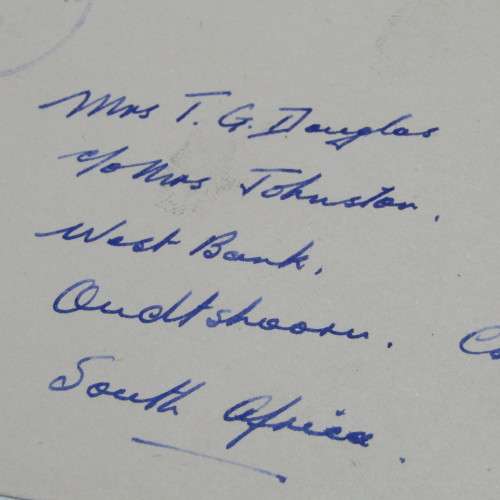 Mrs T. G. Douglas
c/o Mrs Johnston.
West Bank.
Oudtshoorn. 
South Africa.